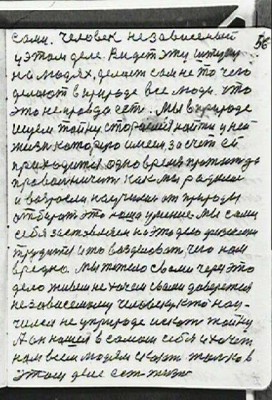 сами. Человек независемый
у этом деле. Видет эту штуку
на людях, делает сам не то чего
делают в природе все люди. Что
это неправда есть. Мы в природе
ищем тайну стораемся найти у ней
жизн которую имеем, за счет ей
приходится одно время
как мы родился
и возросли научилися от природы
отбирать это наша умение. Мы сами
себя заставляем на это дело
трудится и что
вредно. Мы только своими через это
дело живем не хочем своим доверется
независемому человеку кто нау-
чился не у природе искать тайну
А он нашел в самом себе и хочет
нам всем людям сказать только в
этом деле есть жизн
56